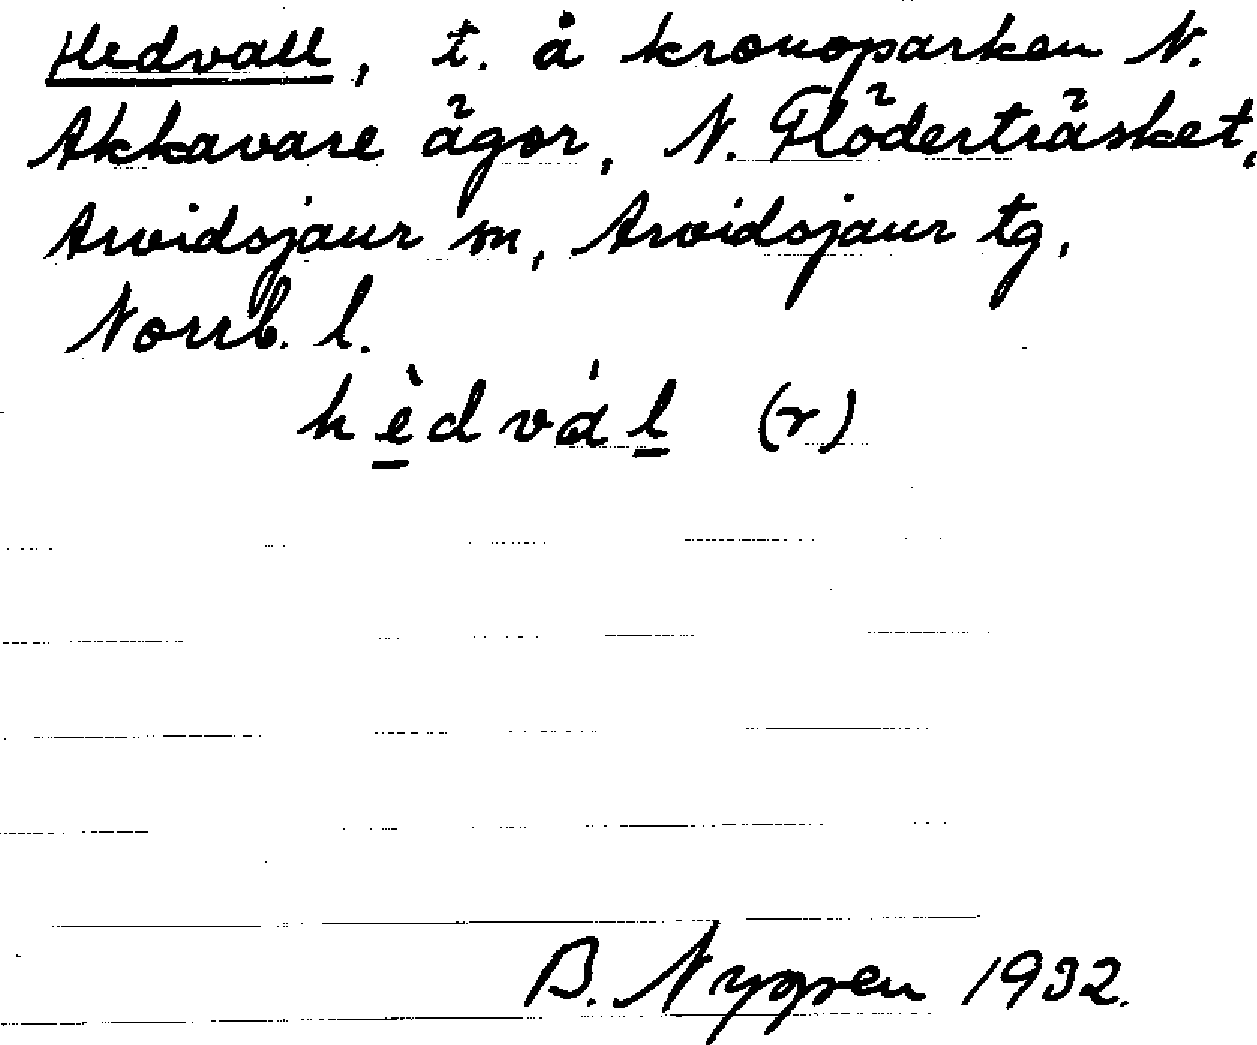 Hedvall, t. å kronoparken N.
Akkavare ägor, N. Flöderträsket,
Arvidsjaur sn, Arvidsjaur tg,
Norrb. l.
hèdvál (r)
B. Nygren 1932.